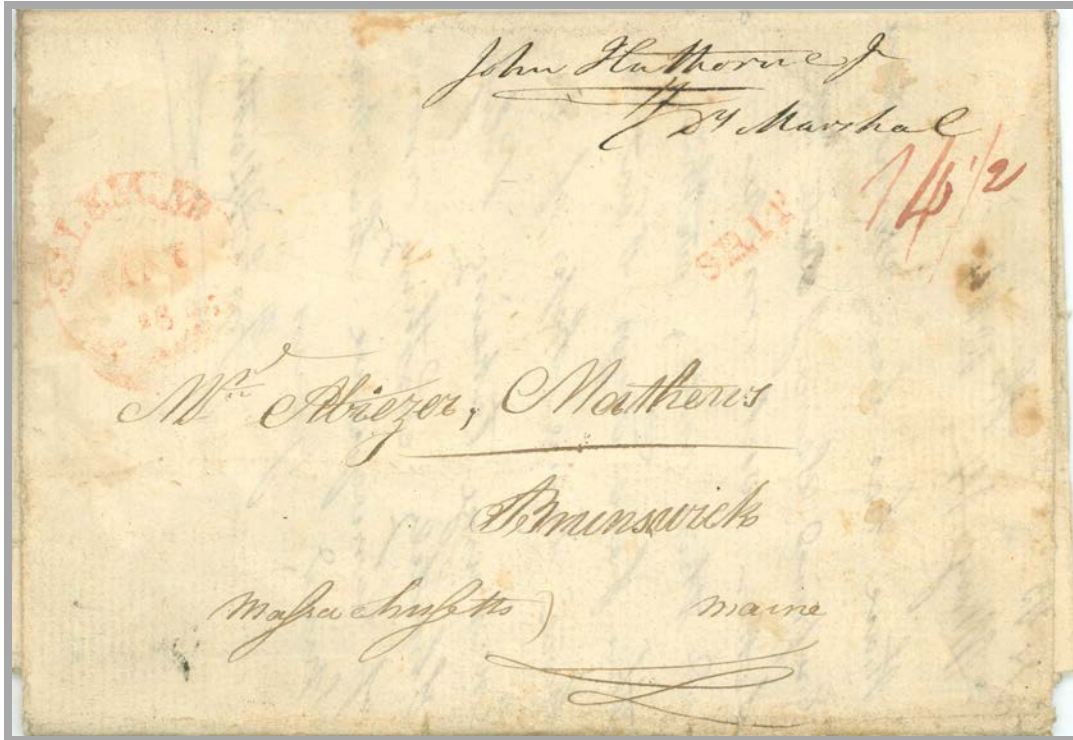 John Hathorne Jr
Dy Marshal
14 1/2
SHIP
SALEM
MAY
Mr Abiezer, Mathews
Brunswick
Massachusetts) maine